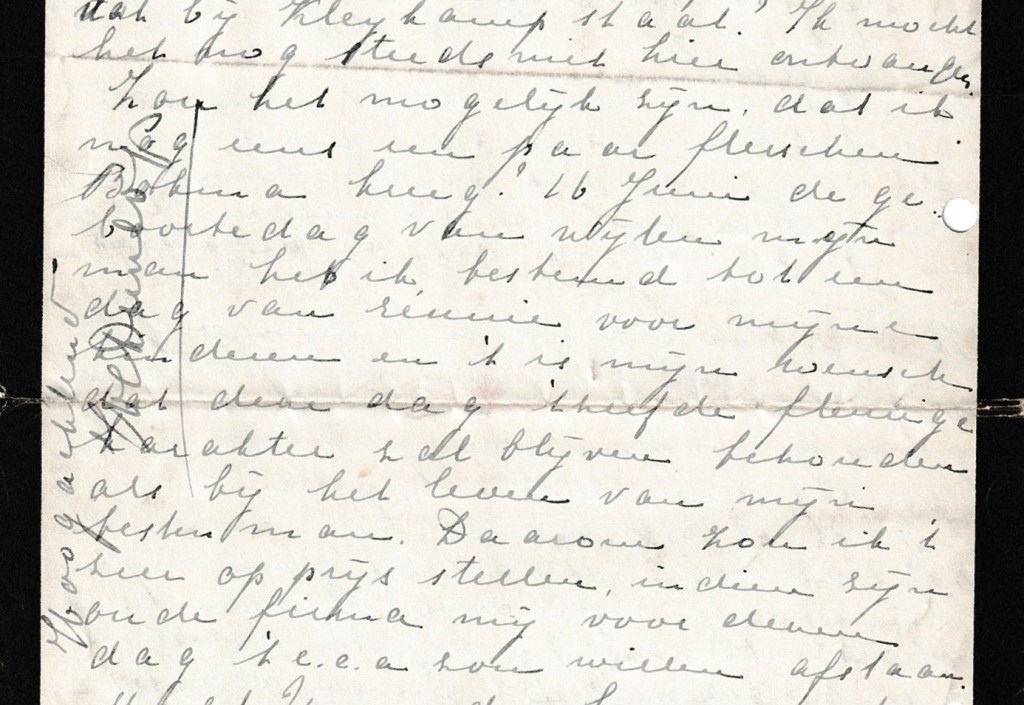 dat bij Kleykamp staat? Ik mocht
het nog steeds niet hier ontvangen.
Zou het mogelijk zijn, dat ik
nog eens een paar flesschen
Bokma kreeg? 16 Juni de ge-
boortedag van wijlen mijn
man heb ik bestemd tot een
dag van reünie voor mijne
kinderen en 't is mijn wensch
dat deze dag 't zelfde
karakter zal blijven behouden
als bij het leven van mijn
besten man. Daarom zou ik 't
zeer op prijs stellen, indien zijn
oude firma mij voor dezen
dag 't e.e.a zou willen afstaan.
Hoogachtend